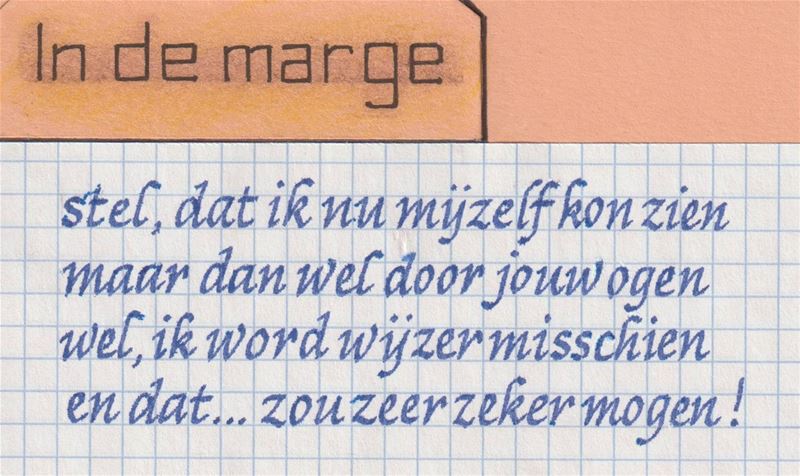 In de marge
stel, dat ik nu mijzelf kon zien
maar dan wel door jouw ogen
wel, ik word wijzer misschien
en dat... zou zeer zeker mogen!